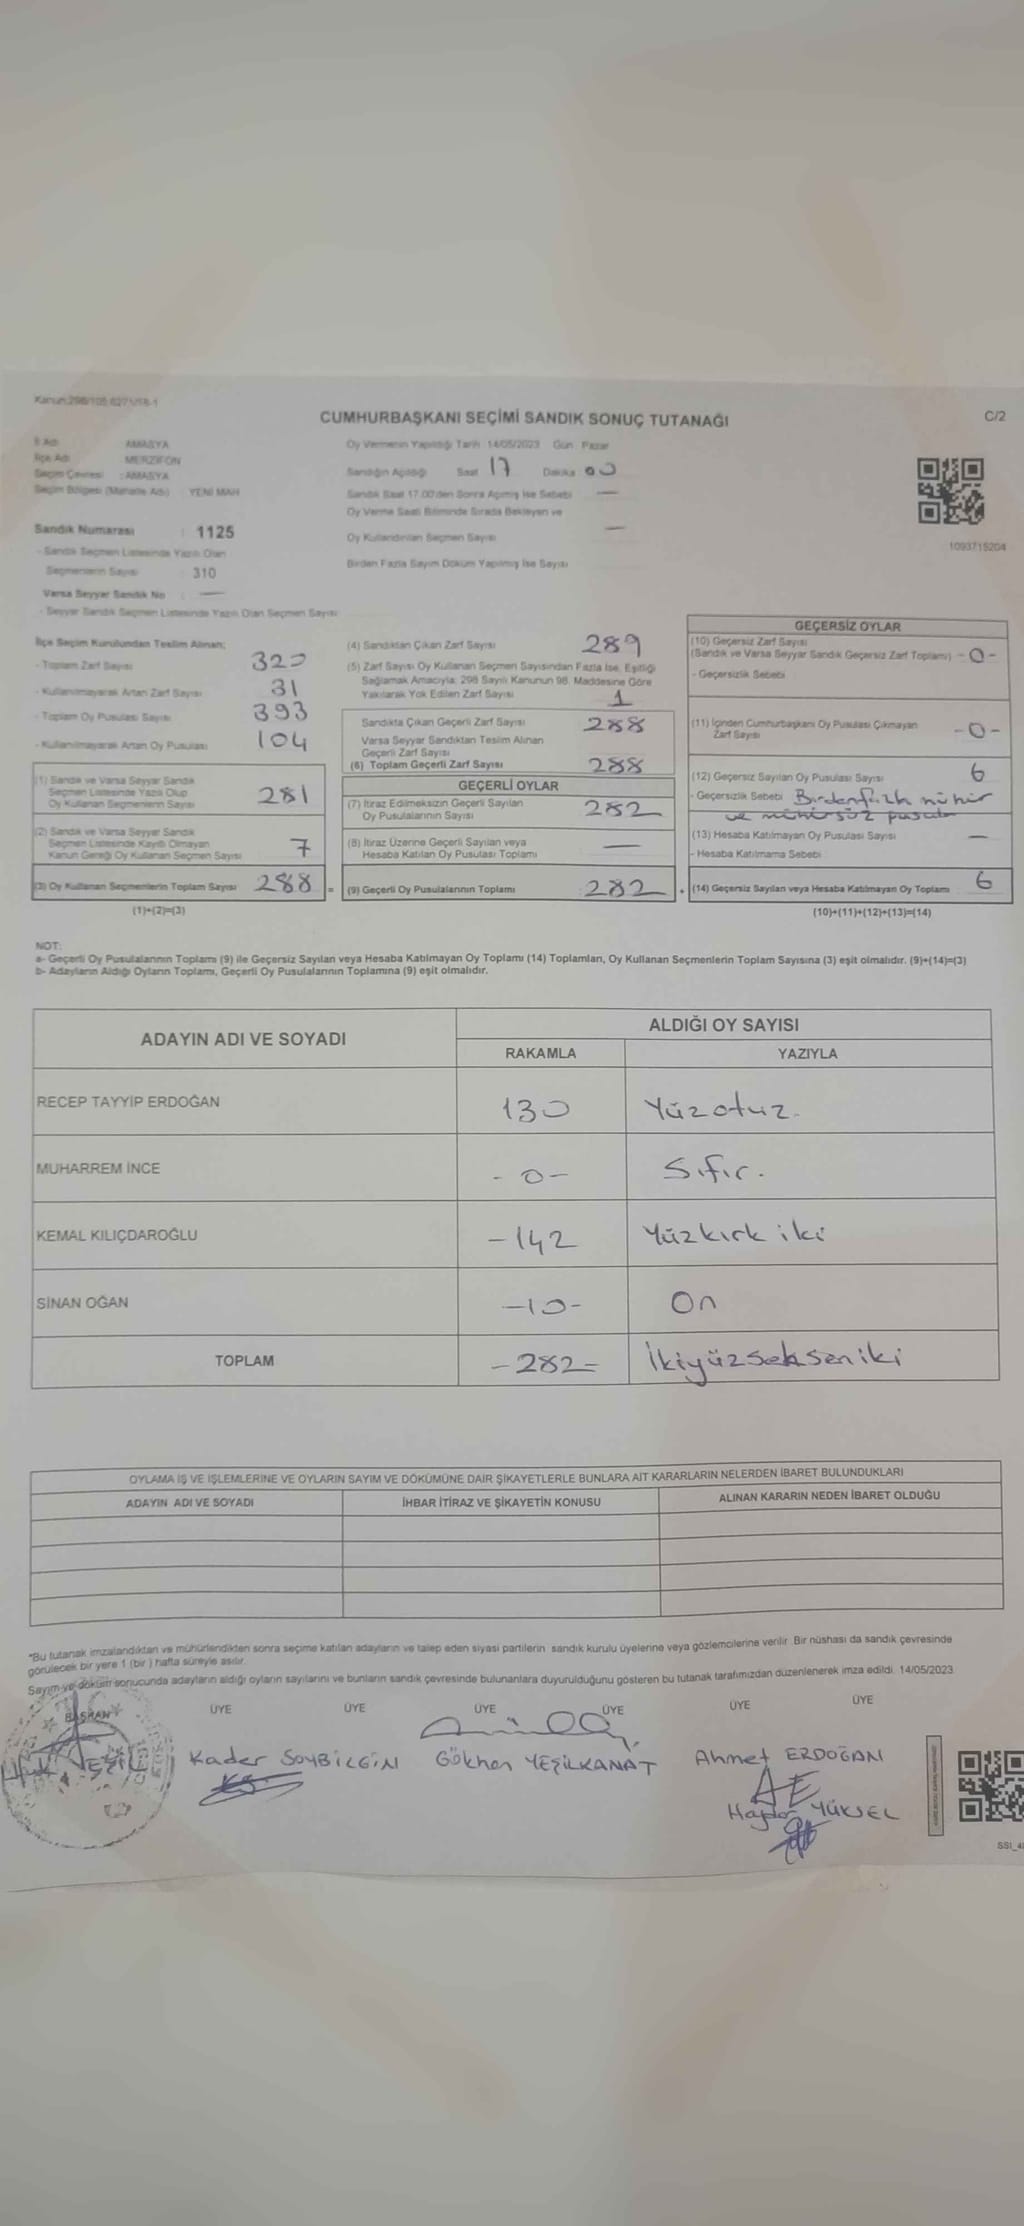 Kanun:298/105 6271/18-1
CUMHURBAŞKANI SEÇİMİ SANDIK SONUÇ TUTANAĞI
C/2
İl Adı AMASYA
İlçe Adı MERZİFON
Seçim Çevresi : AMASYA
Seçim Bölgesi (Mahalle Adı) : YENİ MAH
Sandık Numarası : 1125
- Sandık Seçmen Listesinde Yazılı Olan
Seçmenlerin Sayısı : 310
Varsa Seyyar Sandık No : —
- Seyyar Sandık Seçmen Listesinde Yazılı Olan Seçmen Sayısı
Oy Vermenin Yapıldığı Tarih 14/05/2023 Gün Pazar
Sandığın Açıldığı Saat 17 Dakika 00
Sandık Saat 17.00'den Sonra Açılmış İse Sebebi —
Oy Verme Saati Bitiminde Sırada Bekleyen ve
Oy Kullandırılan Seçmen Sayısı —
Birden Fazla Sayım Döküm Yapılmış İse Sayısı
1093715204
İlçe Seçim Kurulundan Teslim Alınan;
- Toplam Zarf Sayısı 320
- Kullanılmayarak Artan Zarf Sayısı 31
- Toplam Oy Pusulası Sayısı 393
- Kullanılmayarak Artan Oy Pusulası 104
(1) Sandık ve Varsa Seyyar Sandık
Seçmen Listesinde Yazılı Olup
Oy Kullanan Seçmenlerin Sayısı 281
(2) Sandık ve Varsa Seyyar Sandık
Seçmen Listesinde Kayıtlı Olmayan
Kanun Gereği Oy Kullanan Seçmen Sayısı 7
(3) Oy Kullanan Seçmenlerin Toplam Sayısı 288 =
(1)+(2)=(3)
(4) Sandıktan Çıkan Zarf Sayısı 289
(5) Zarf Sayısı Oy Kullanan Seçmen Sayısından Fazla İse, Eşitliği
Sağlamak Amacıyla, 298 Sayılı Kanunun 98. Maddesine Göre
Yakılarak Yok Edilen Zarf Sayısı 1
Sandıkta Çıkan Geçerli Zarf Sayısı 288
Varsa Seyyar Sandıktan Teslim Alınan
Geçerli Zarf Sayısı
(6) Toplam Geçerli Zarf Sayısı 288
GEÇERLİ OYLAR
(7) İtiraz Edilmeksizin Geçerli Sayılan
Oy Pusulalarının Sayısı 282
(8) İtiraz Üzerine Geçerli Sayılan veya
Hesaba Katılan Oy Pusulası Toplamı —
(9) Geçerli Oy Pusulalarının Toplamı 282 +
GEÇERSİZ OYLAR
(10) Geçersiz Zarf Sayısı
(Sandık ve Varsa Seyyar Sandık Geçersiz Zarf Toplamı) -0-
- Geçersizlik Sebebi
(11) İçinden Cumhurbaşkanı Oy Pusulası Çıkmayan
Zarf Sayısı -0-
(12) Geçersiz Sayılan Oy Pusulası Sayısı 6
- Geçersizlik Sebebi Birden fazla mühür
ve mühürsüz pusula
(13) Hesaba Katılmayan Oy Pusulası Sayısı —
- Hesaba Katılmama Sebebi
(14) Geçersiz Sayılan veya Hesaba Katılmayan Oy Toplamı 6
(10)+(11)+(12)+(13)=(14)
NOT:
a- Geçerli Oy Pusulalarının Toplamı (9) ile Geçersiz Sayılan veya Hesaba Katılmayan Oy Toplamı (14) Toplamları, Oy Kullanan Seçmenlerin Toplam Sayısına (3) eşit olmalıdır. (9)+(14)=(3)
b- Adayların Aldığı Oyların Toplamı, Geçerli Oy Pusulalarının Toplamına (9) eşit olmalıdır.
ADAYIN ADI VE SOYADI
ALDIĞI OY SAYISI
RAKAMLA YAZIYLA
RECEP TAYYİP ERDOĞAN 130 Yüzotuz.
MUHARREM İNCE -0- Sıfır.
KEMAL KILIÇDAROĞLU -142 Yüzkırk iki
SİNAN OĞAN -10- On
TOPLAM -282= İkiyüzseksen iki
OYLAMA İŞ VE İŞLEMLERİNE VE OYLARIN SAYIM VE DÖKÜMÜNE DAİR ŞİKAYETLERLE BUNLARA AİT KARARLARIN NELERDEN İBARET BULUNDUKLARI
ADAYIN ADI VE SOYADI İHBAR İTİRAZ VE ŞİKAYETİN KONUSU ALINAN KARARIN NEDEN İBARET OLDUĞU
*Bu tutanak imzalandıktan ve mühürlendikten sonra seçime katılan adayların ve talep eden siyasi partilerin sandık kurulu üyelerine veya gözlemcilerine verilir. Bir nüshası da sandık çevresinde
görülecek bir yere 1 (bir ) hafta süreyle asılır.
Sayım ve döküm sonucunda adayların aldığı oyların sayılarını ve bunların sandık çevresinde bulunanlara duyurulduğunu gösteren bu tutanak tarafımızdan düzenlenerek imza edildi. 14/05/2023
BAŞKAN ÜYE ÜYE ÜYE ÜYE ÜYE ÜYE
Kader SOYBİLGİN Gökhan YEŞİLKANAT Ahmet ERDOĞAN
AE
Haydar YÜKSEL